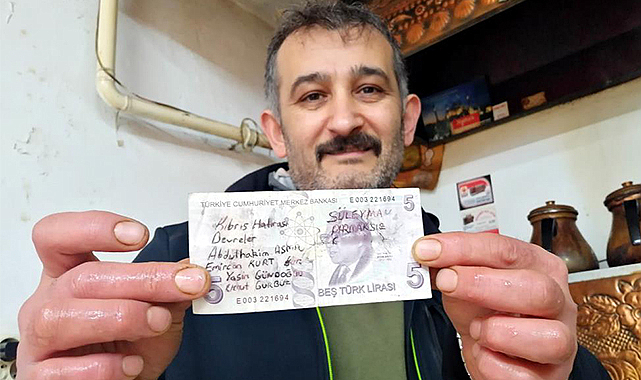 TÜRKİYE CUMHURİYET MERKEZ BANKASI E 003 221694 5
Kıbrıs Hatırası
Devreler
Abdulhakim
Emircan KURT
Yasin GÜNDOĞDU
GÜRBÜZ
SÜLEYMAN
PARMAKSIZ
5
E 003 221694
BEŞ TÜRK LİRASI 5